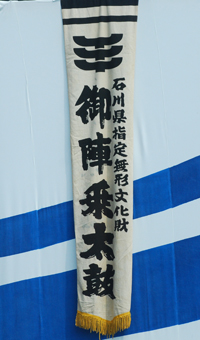 石川県指定無形文化財
御陣乗太鼓